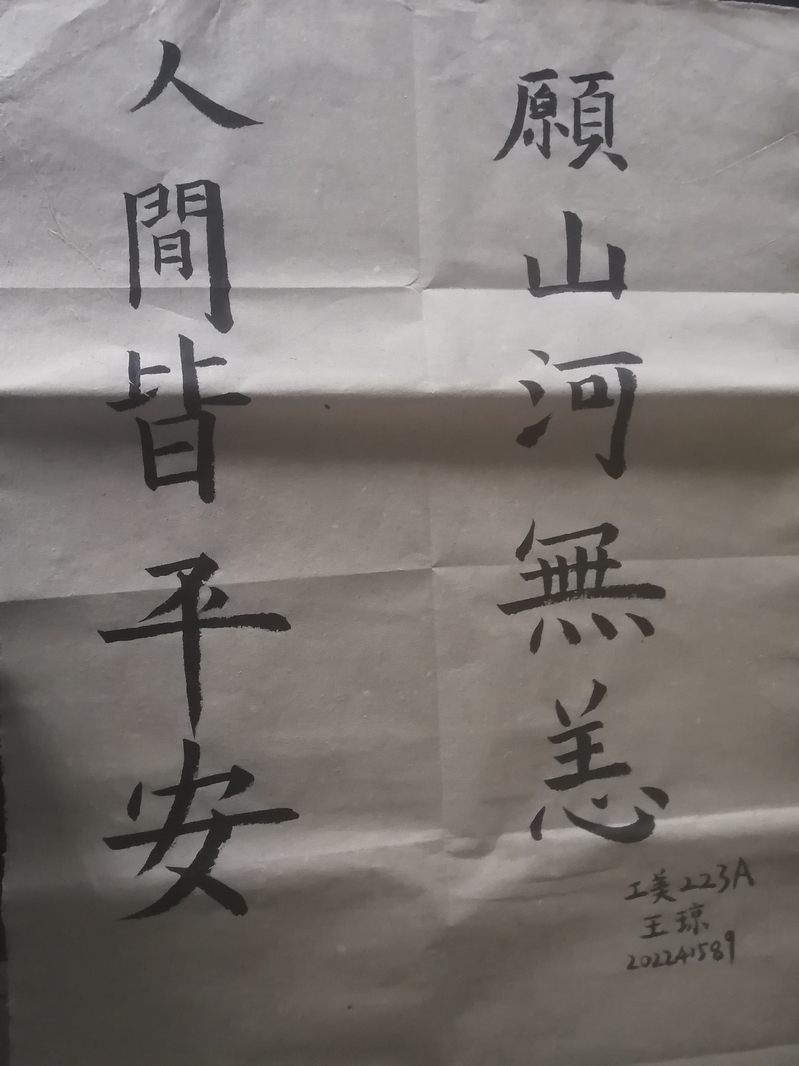 願山河無恙
人間皆平安
工美223A
王琼
202241589